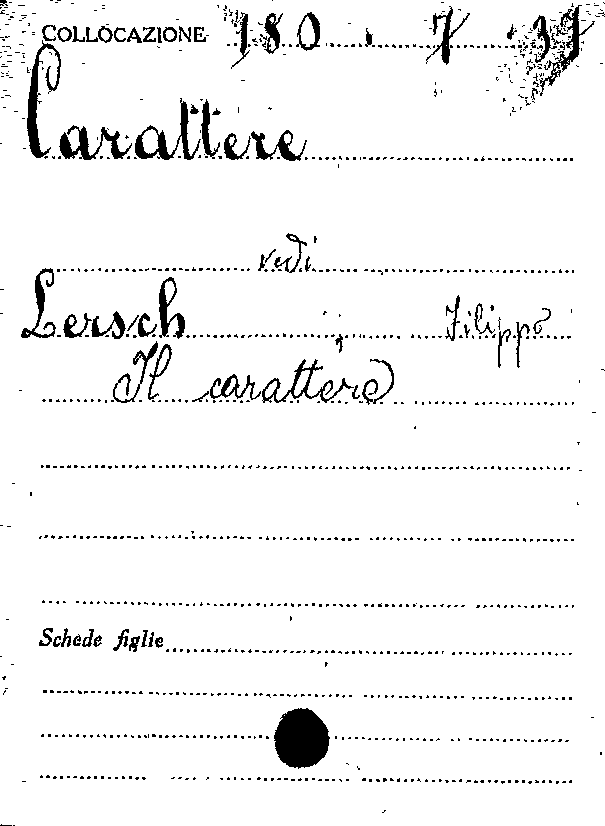 COLLOCAZIONE 180 . 7 . 37
Carattere
vedi
Lersch, Filippo
Il carattere
Schede figlie